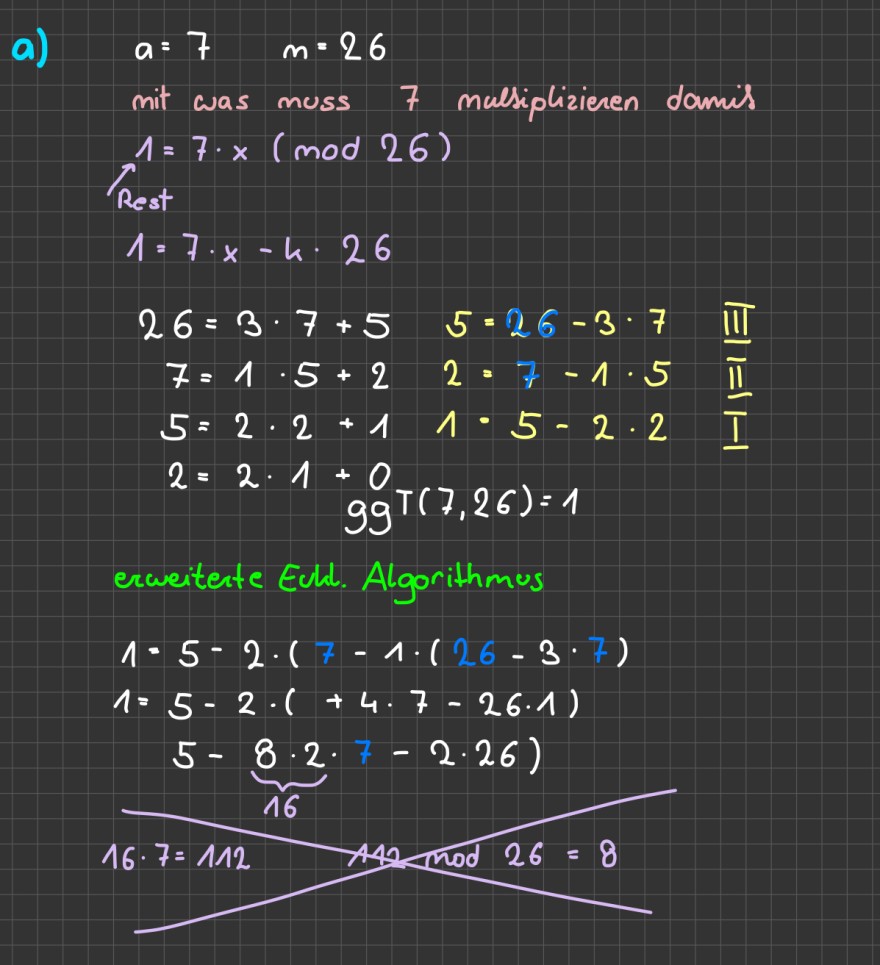 a) a = 7 m = 26
mit was muss 7 multiplizieren damit
1 = 7 · x (mod 26)
Rest
1 = 7 · x - k · 26
26 = 3 · 7 + 5 5 = 26 - 3 · 7 III
7 = 1 · 5 + 2 2 = 7 - 1 · 5 II
5 = 2 · 2 + 1 1 = 5 - 2 · 2 I
2 = 2 · 1 + 0
ggT(7,26) = 1
erweiterte Eukl. Algorithmus
1 = 5 - 2 · ( 7 - 1 · ( 26 - 3 · 7 )
1 = 5 - 2 · ( + 4 · 7 - 26 · 1 )
5 - 8 · 2 · 7 - 2 · 26 )
16
16 · 7 = 112 112 mod 26 = 8